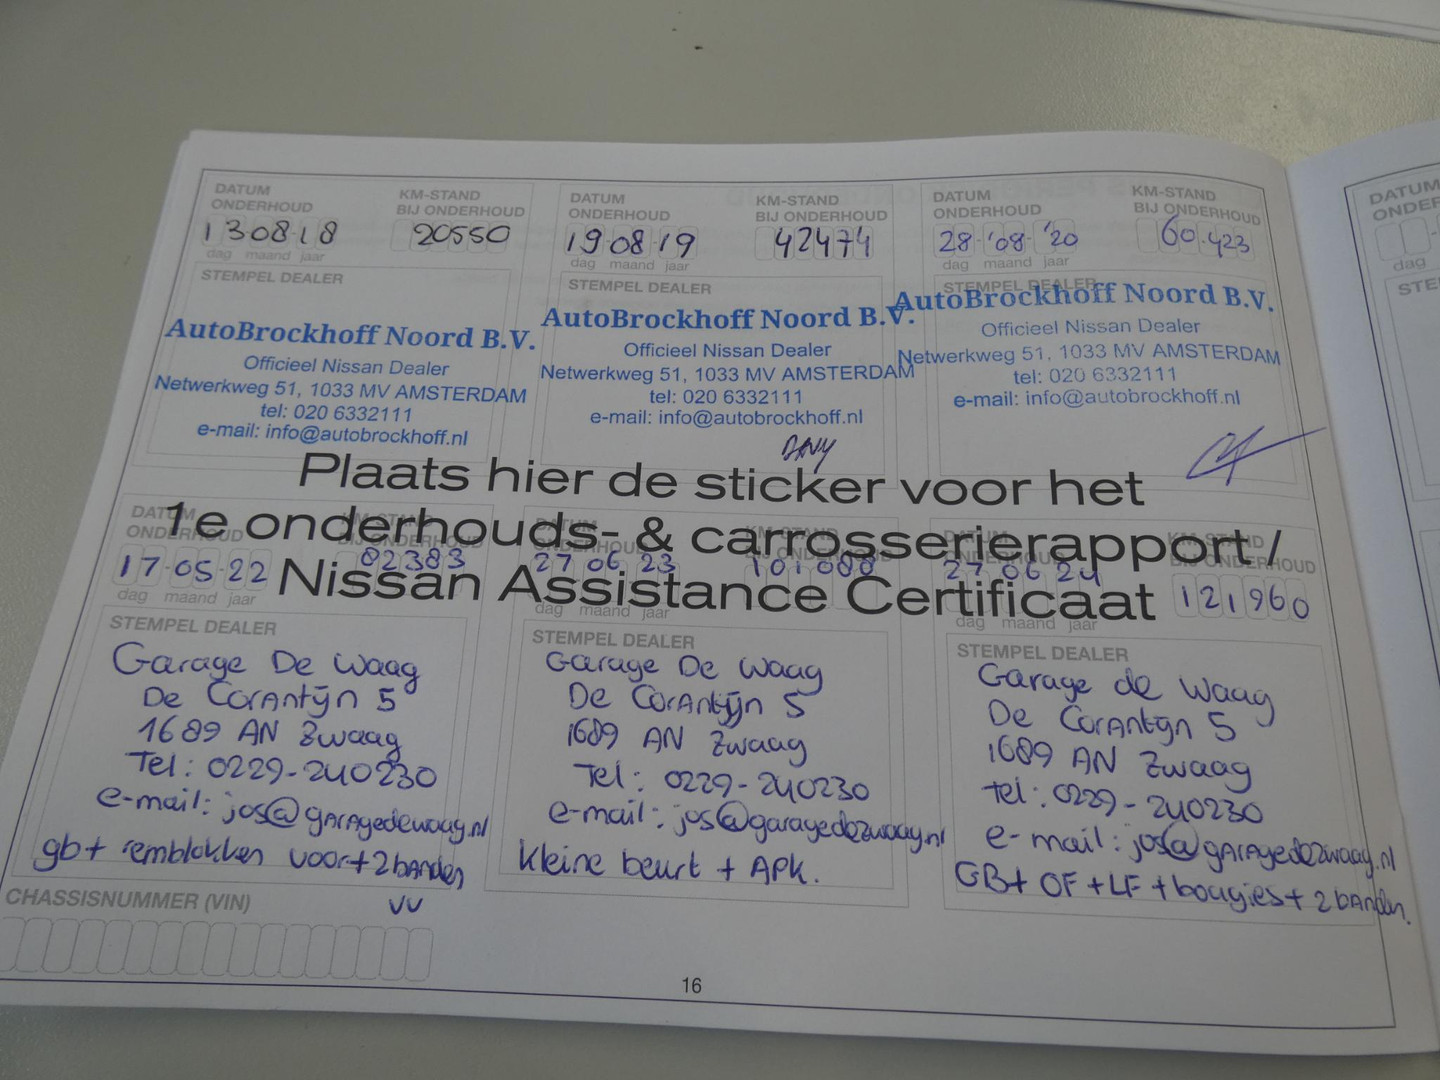 DATUM
ONDERHOUD
130818
dag maand jaar
KM-STAND
BIJ ONDERHOUD
20550
STEMPEL DEALER
AutoBrockhoff Noord B.V.
Officieel Nissan Dealer
Netwerkweg 51, 1033 MV AMSTERDAM
tel: 020 6332111
e-mail: info@autobrockhoff.nl
DATUM
ONDERHOUD
19 08 19
dag maand jaar
KM-STAND
BIJ ONDERHOUD
42474
STEMPEL DEALER
AutoBrockhoff Noord B.V.
Officieel Nissan Dealer
Netwerkweg 51, 1033 MV AMSTERDAM
tel: 020 6332111
e-mail: info@autobrockhoff.nl
DATUM
ONDERHOUD
28-'08-'20
dag maand jaar
KM-STAND
BIJ ONDERHOUD
60.423
STEMPEL DEALER
AutoBrockhoff Noord B.V.
Officieel Nissan Dealer
Netwerkweg 51, 1033 MV AMSTERDAM
tel: 020 6332111
e-mail: info@autobrockhoff.nl
Plaats hier de sticker voor het
1e onderhouds- & carrosserierapport /
Nissan Assistance Certificaat
DATUM
ONDERHOUD
17-05-22
dag maand jaar
KM-STAND
BIJ ONDERHOUD
82383
STEMPEL DEALER
Garage De Waag
De Corantijn 5
1689 AN Zwaag
Tel: 0229-240230
e-mail: jos@garagedewaag.nl
gb+ remblokken voor+2banden
VV
DATUM
ONDERHOUD
27 06 23
dag maand jaar
KM-STAND
BIJ ONDERHOUD
101088
STEMPEL DEALER
Garage De Waag
De Corantijn 5
1689 AN Zwaag
Tel: 0229-240230
e-mail: jos@garagedezwaag.nl
Kleine beurt + APK.
DATUM
ONDERHOUD
27 06 24
dag maand jaar
KM-STAND
BIJ ONDERHOUD
121960
STEMPEL DEALER
Garage de Waag
De Corantijn 5
1689 AN Zwaag
tel: 0229-240230
e-mail: jos@garagedezwaag.nl
GB+ OF+LF+bougies+2banden.
CHASSISNUMMER (VIN)
16
DATUM
dag